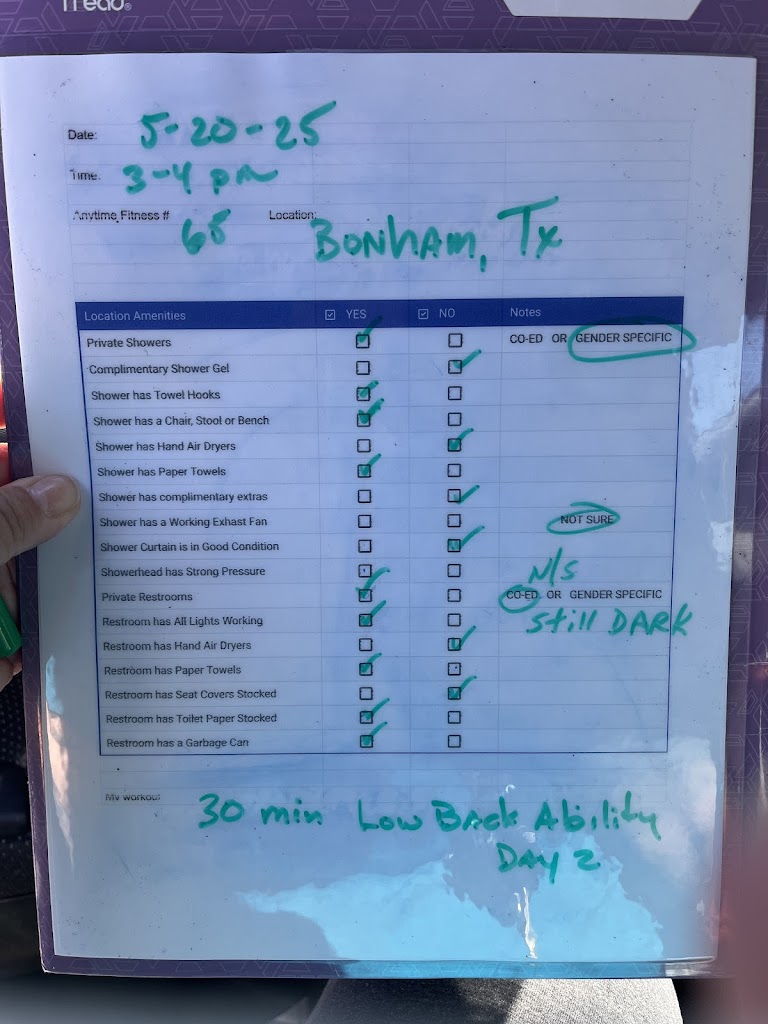 Tread®
Date: 5-20-25
Time: 3-4 pm
Anytime Fitness # 68 Location: BONHAM, Tx
Location Amenities ☑ YES ☑ NO Notes
Private Showers ☑ ☐ CO-ED OR GENDER SPECIFIC
Complimentary Shower Gel ☐ ☑
Shower has Towel Hooks ☑ ☐
Shower has a Chair, Stool or Bench ☑ ☐
Shower has Hand Air Dryers ☐ ☑
Shower has Paper Towels ☑ ☐
Shower has complimentary extras ☐ ☑
Shower has a Working Exhast Fan ☐ ☐ NOT SURE
Shower Curtain is in Good Condition ☐ ☑
Showerhead has Strong Pressure ☐ ☐ N/S
Private Restrooms ☑ ☐ CO-ED OR GENDER SPECIFIC
Restroom has All Lights Working ☑ ☐ Still DARK
Restroom has Hand Air Dryers ☐ ☑
Restroom has Paper Towels ☑ ☐
Restroom has Seat Covers Stocked ☐ ☑
Restroom has Toilet Paper Stocked ☑ ☐
Restroom has a Garbage Can ☑ ☐
My workout: 30 min Low Back Ability
DAY 2